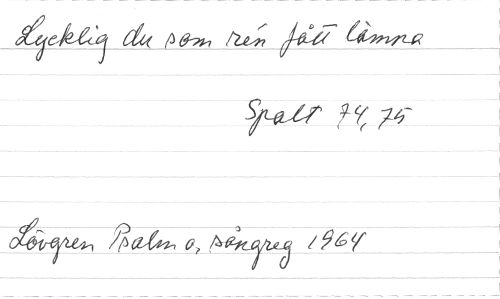 Lycklig du som ren fått lämna
Spalt 74, 75
Lövgren Psalm o, sångreg 1964